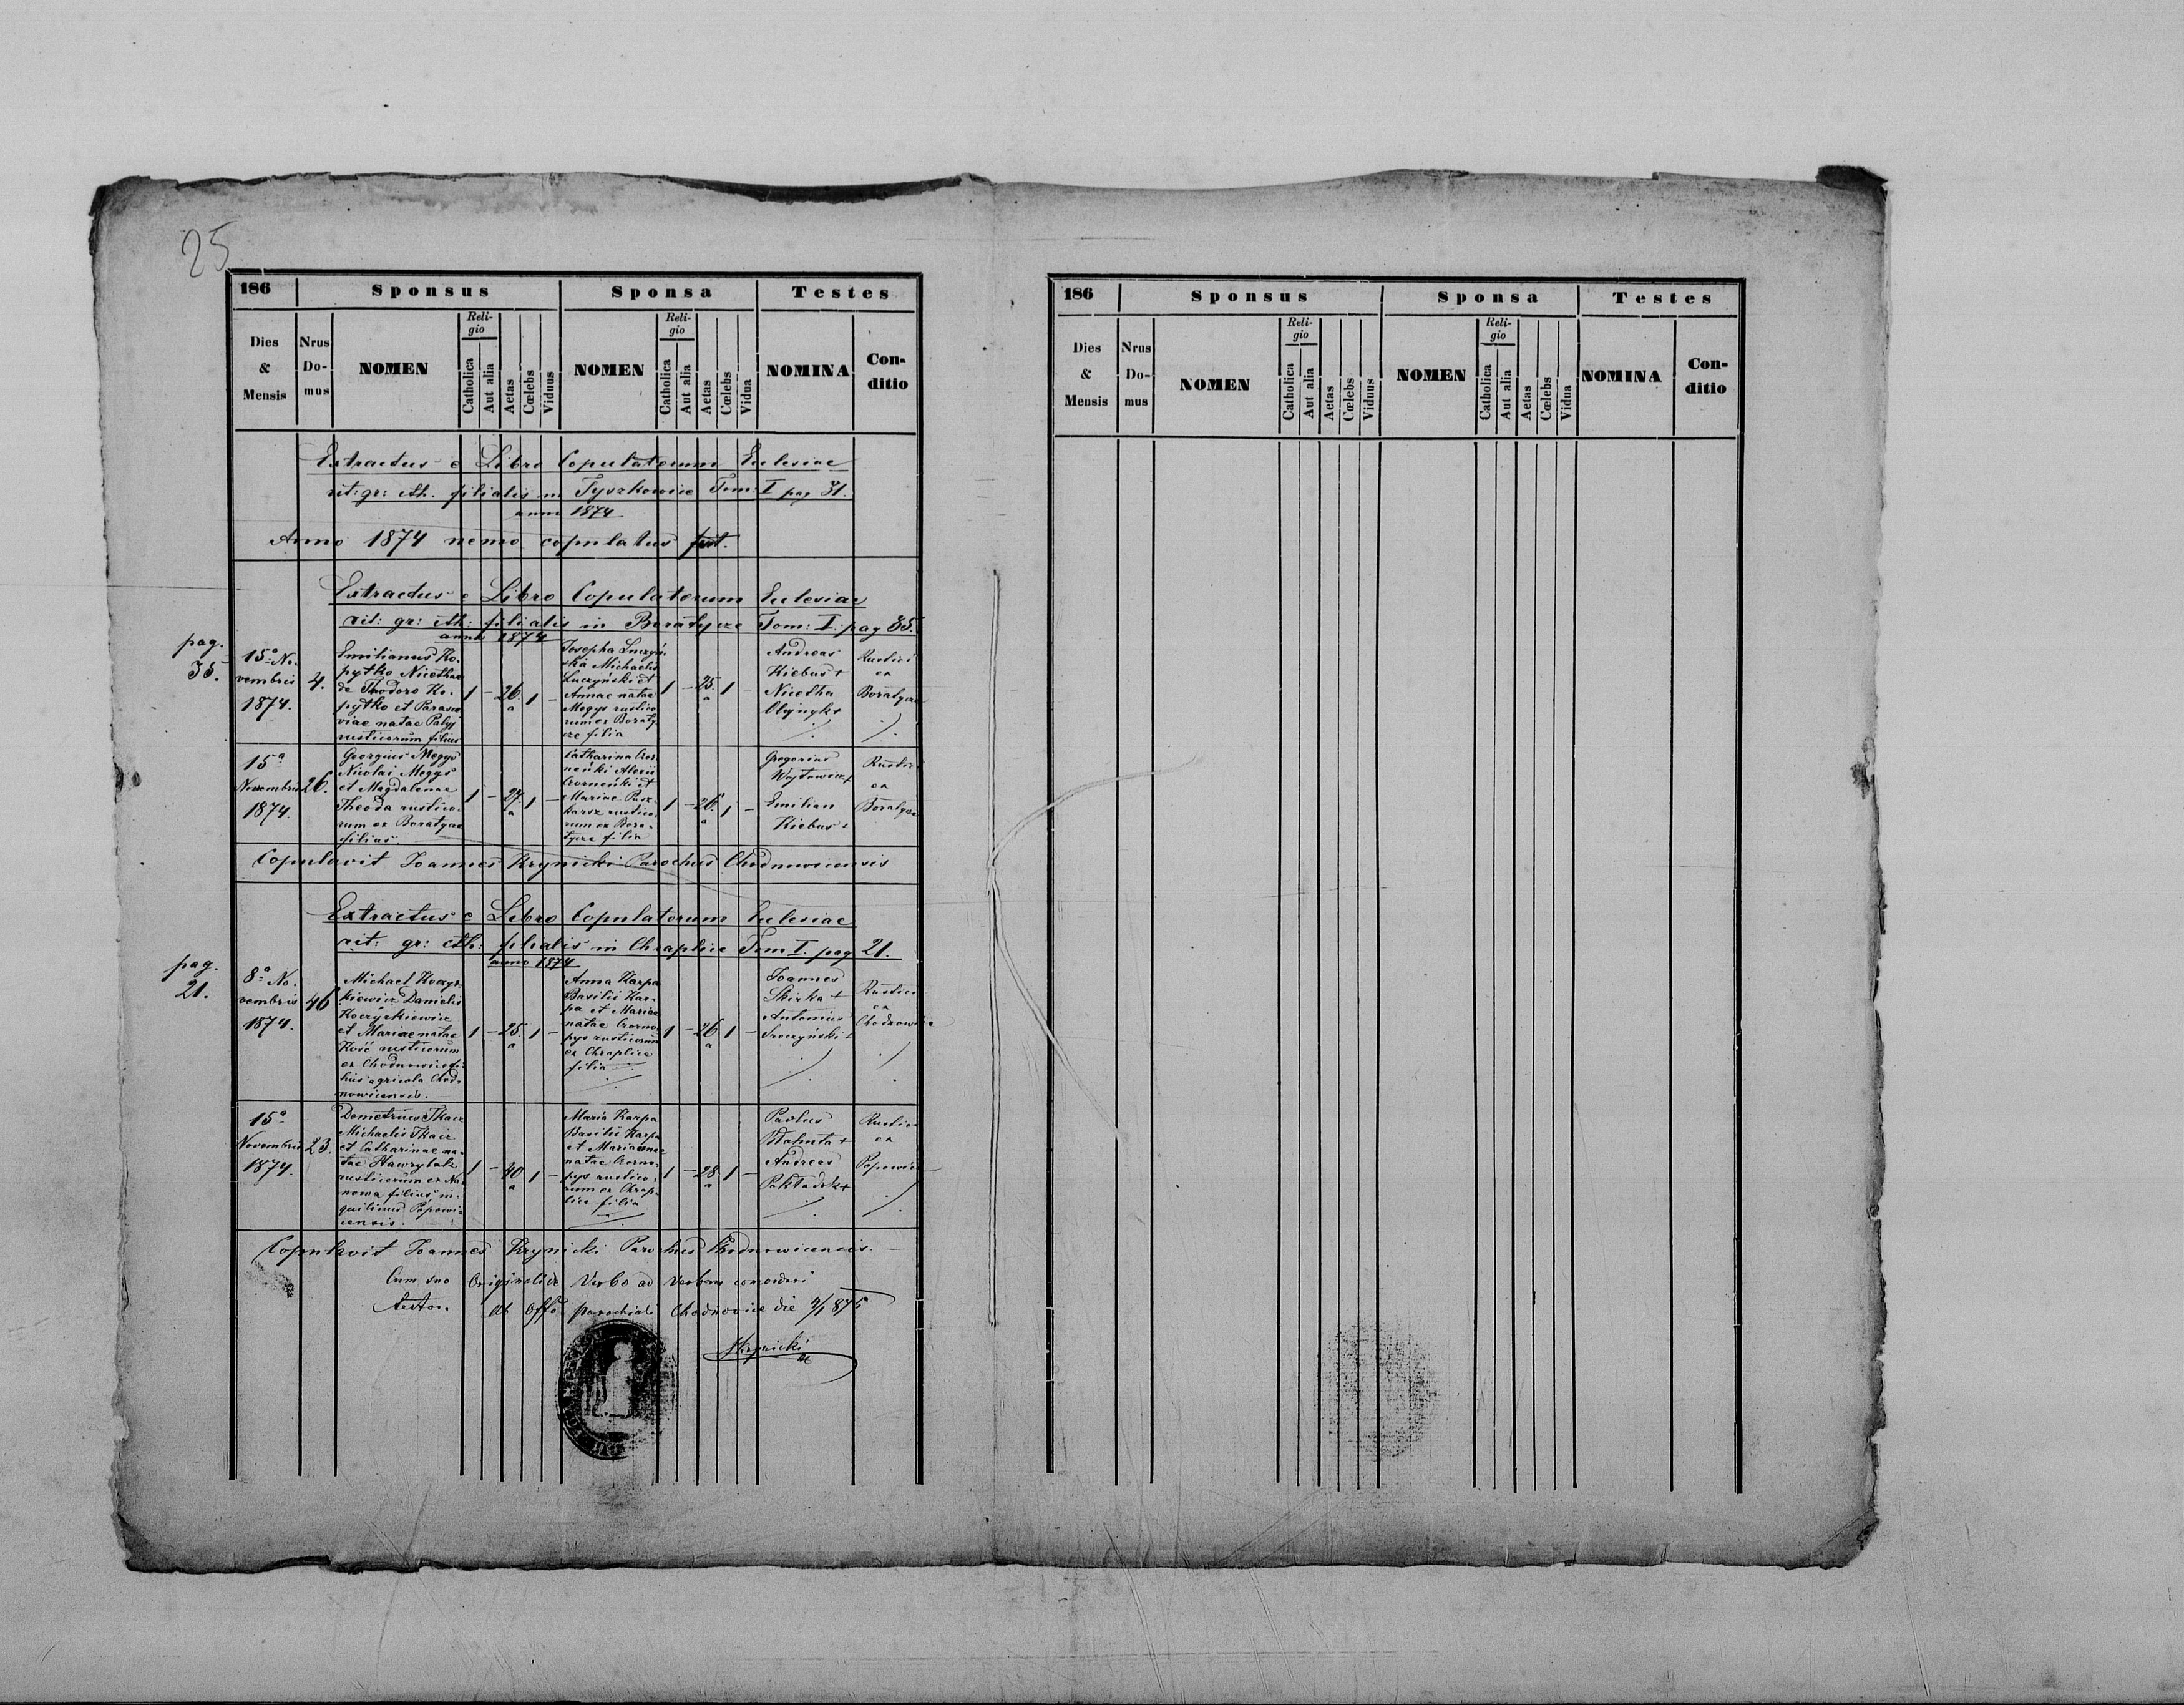 25
186 Sponsus Sponsa Testes
Dies & Mensis Nrus Domus NOMEN Religio Catholica Aut alia Aetas Cœlebs Viduus NOMEN Religio Catholica Aut alia Aetas Cœlebs Vidua NOMINA Conditio
Extractus e Libro Copulatorum Eclesiae
rit: gr: cth. filialis in Tyszkowice Tom: I pag 31.
anno 1874
Anno 1874 nemo copulatus fuit.
Extractus e Libro Copulatorum Eclesiae
rit: gr: cth: filialis in Boratycze Tom: I. pag 35.
anno 1874
pag.
35.
15a No-
vembris
1874.
4.
Emilianus Ko-
pytko Nicethae
de Theodoro Ko-
pytko et Parasce-
viae natae Palyj
rusticorum filius
1 - 26 a 1 -
Josepha Luczyń-
ska Michaelis
Luczyński et
Annae natae
Megys rustico-
rum ex Boraty-
cze filia
1 - 25 a 1 -
Andreas
Kiebus +
Nicetha
Olejnyk +
Rustici
ex
Boratycze
15a
Novembris
1874.
26.
Georgius Megys
Nicolai Megys
et Magdalenae
Theoda rustico-
rum ex Boratycze
filius
1 - 27 a 1 -
Catharina
Alexii
et
Mariae
rustico-
rum ex Bora-
tycze filia
1 - 26 a 1 -
Gregorius
Wojtowicz +
Emilian
Kiebus +
Rustici
ex
Boratycze
Copulavit Joannes Krynicki Parochus Chodnowicensis
Extractus e Libro Copulatorum Eclesiae
rit: gr: cth: filialis in Chraplice Tom I. pag 21.
anno 1874
pag.
21.
8a No-
vembris
1874.
46
Michael Koczyr-
kiewicz Danielis
Koczyrkiewicz
et Mariae natae
Kość rusticorum
ex Chodnowice fi-
lius agricola Chod-
nowicensis.
1 - 25 a 1 -
Anna Karpa
Basilii Kar-
pa et Mariae
natae Czorno-
pys rusticorum
ex Chraplice
filia
1 - 26 a 1 -
Joannes
Skirka +
Antonius
Sroczyński +
Rustici
ex
Chodnowice
15a
Novembris
1874.
23.
Demetrius Tkacz
Michaelis Tkacz
et Catharinae na-
tae Hawrylak
rusticorum ex
filius in-
quilinus Popowi-
censis.
1 - 40 a 1 -
Maria Karpa
Basilii Karpa
et Mariae
natae Czorno-
pys rustico-
rum ex Chrap-
lice filia
1 - 28 a 1 -
Paulus
+
Andreas
+
Rustici
ex
Popowice
Copulavit Joannes Krynicki Parochus Chodnowicensis.
Cum suo Originali de Verbo ad Verbum concordari
testor. Ab Offo parochiali Chodnowice die 2/1 875
JKrynicki
186 Sponsus Sponsa Testes
Dies & Mensis Nrus Domus NOMEN Religio Catholica Aut alia Aetas Cœlebs Viduus NOMEN Religio Catholica Aut alia Aetas Cœlebs Vidua NOMINA Conditio